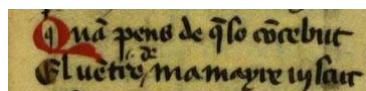 Quā pens de q̄ so cōcebut
El uētre de ma mayre yscut